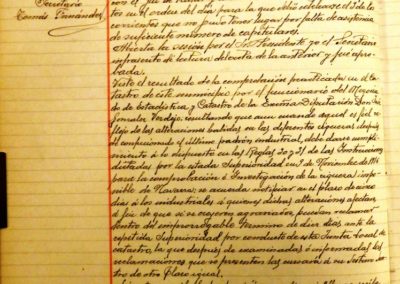 Secretario
Tomás Fernández
en el orden del día para la que debió celebrarse el 3 de los
corrientes que no pudo tener lugar por falta de asistencia
de suficiente número de capitulares.
Abierta la sesión por el Sr. Presidente yo el Secretario
infrascrito di lectura del acta de la anterior y fué apro-
bada.
Visto el resultado de la comprobación practicada en el Ca-
tastro de este municipio por el funcionario del Negociado
de Estadística y Catastro de la Excma. Diputación Don
González Verdejo, resultando que aun cuando aquel es fiel re-
flejo de las alteraciones habidas en las diferentes riquezas después
de confeccionado el último padrón industrial, debe darse cumpli-
miento á lo dispuesto en las Reglas 20 y 21 de las Instrucciones
dictadas por la citada Superioridad en 3 de Noviembre de
para la comprobación é Investigación de la riqueza im-
ponible de Navarra; se acuerda notificar en el plazo de cinco
días á los industriales á quienes dichas alteraciones afectan
á fin de que si se creyeren agraviados, puedan reclamar
dentro del improrrogable término de diez días ante la
repetida Superioridad por conducto de esta Junta local de
catastro, la que después de examinadas é informadas las
reclamaciones que se presenten las cursará á su destino den-
tro de otro plazo igual.